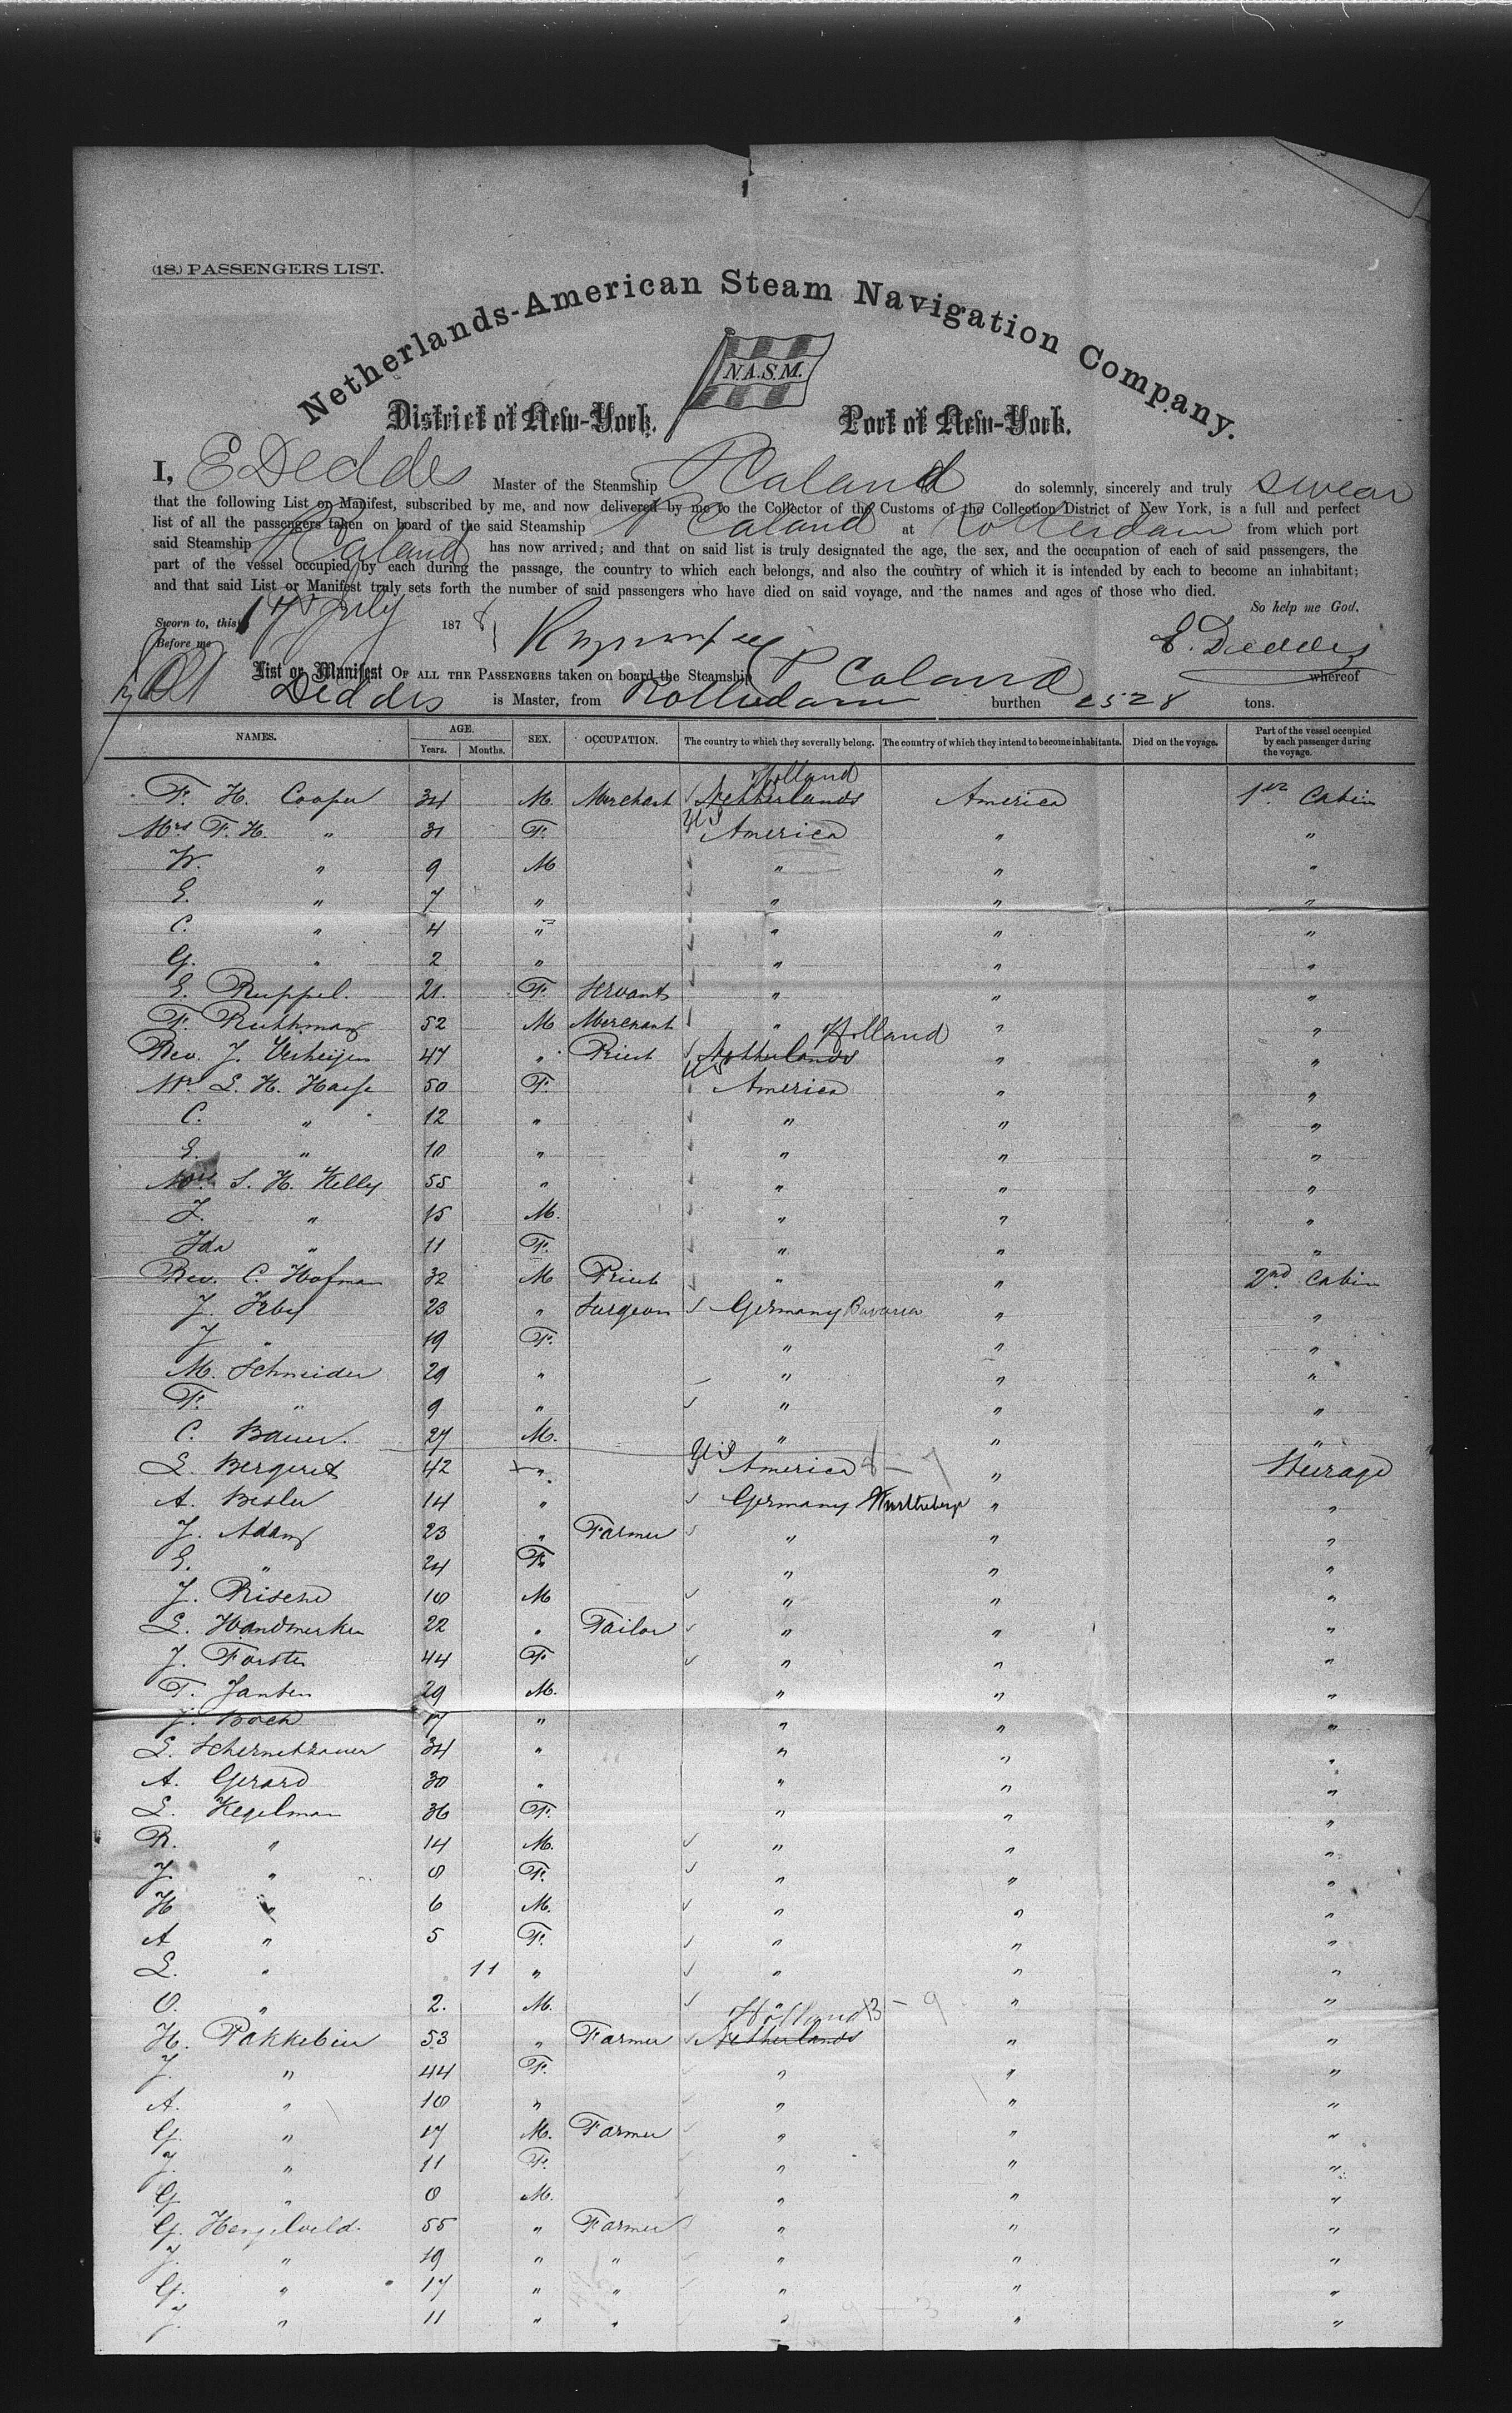 (18.) PASSENGERS LIST.
Netherlands-American Steam Navigation Company.
N.A.S.M.
District of New-York. Port of New-York.
I, E Deddes Master of the Steamship P Caland do solemnly, sincerely and truly swear
that the following List or Manifest, subscribed by me, and now delivered by me to the Collector of the Customs of the Collection District of New York, is a full and perfect
list of all the passengers taken on board of the said Steamship P Caland at Rotterdam from which port
said Steamship P Caland has now arrived; and that on said list is truly designated the age, the sex, and the occupation of each of said passengers, the
part of the vessel occupied by each during the passage, the country to which each belongs, and also the country of which it is intended by each to become an inhabitant;
and that said List or Manifest truly sets forth the number of said passengers who have died on said voyage, and the names and ages of those who died.
So help me God.
Sworn to, this July 1878
Before me E. Deddes
List or Manifest OF ALL THE PASSENGERS taken on board the Steamship P Caland whereof
Deddes is Master, from Rotterdam burthen 2528 tons.
NAMES. AGE. Years. Months. SEX. OCCUPATION. The country to which they severally belong. The country of which they intend to become inhabitants. Died on the voyage. Part of the vessel occupied by each passenger during the voyage.
Holland
F. H. Cooper 34 M. Merchant Netherlands America 1st Cabin
US
Mrs F. H. " 31 F. America " "
W. " 9 M " " "
E. " 7 " " " "
C. " 4 " " " "
G. " 2 " " " "
E. Ruppel. 21. F. Servant " " "
F. 52 M Merchant " " "
Holland
Rev. J. Verheijen 47 " Priest Netherlands " "
US
L. H. 50 F. America " "
C. " 12 " " " "
E. " 10 " " " "
Mrs S. H. Kelly 55 " " " "
J. " 15 M. " " "
Ida " 11 F. " " "
Rev. C. Hofman 32 M Priest " " 2nd Cabin
J. 23 " Surgeon Germany Bavaria " "
J " 19 F. " " "
M. Schneider 29 " " " "
F. " 9 " " " "
C. Bauer. 27 M. " " "
US
L. Bergeret 42 " America " Steerage
A. Besler 14 " Germany Wurtteberge " "
J. Adam 23 " Farmer " " "
E. " 24 F. " " "
J. 18 M " " "
L. Handwerker 22 " Tailor " " "
J. Forster 44 F. " " "
T. Jansen 29 M. " " "
J. Boch 17 " " " "
L. 34 " " " "
A. Gerard 30 " " " "
L. Kegelman 36 F. " " "
R. " 14 M. " " "
J " 8 F. " " "
H " 6 M. " " "
A " 5 F. " " "
L. " 11 " " " "
O. " 2. M. " " "
Holland
H. Pakkebier 53 " Farmer Netherlands " "
J. " 44 F. " " "
A. " 18 " " " "
G. " 17 M. Farmer " " "
J. " 11 F. " " "
G. " 8 M. " " "
G. Hengelveld. 55 " Farmer " " "
J. " 19 " " " " "
G. " 17 " " " " "
J. " 11 " " " " "